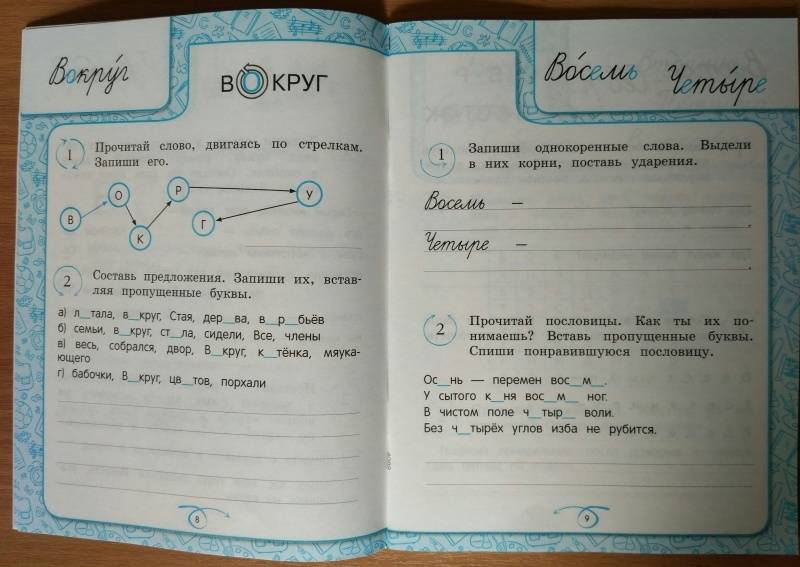 Вокру́г
ВОКРУГ
1 Прочитай слово, двигаясь по стрелкам.
Запиши его.
В О К Р У Г
2 Составь предложения. Запиши их, встав-
ляя пропущенные буквы.
а) л_тала, в_круг, Стая, дер_ва, в_р_бьёв
б) семьи, в_круг, ст_ла, сидели, Все, члены
в) весь, собрался, двор, В_круг, к_тёнка, мяука-
ющего
г) бабочки, В_круг, цв_тов, порхали
8
Во́семь Четы́ре
1 Запиши однокоренные слова. Выдели
в них корни, поставь ударения.
Восемь –
.
Четыре –
.
2 Прочитай пословицы. Как ты их по-
нимаешь? Вставь пропущенные буквы.
Спиши понравившуюся пословицу.
Ос_нь — перемен вос_м_.
У сытого к_ня вос_м_ ног.
В чистом поле ч_тыр_ воли.
Без ч_тырёх углов изба не рубится.
9